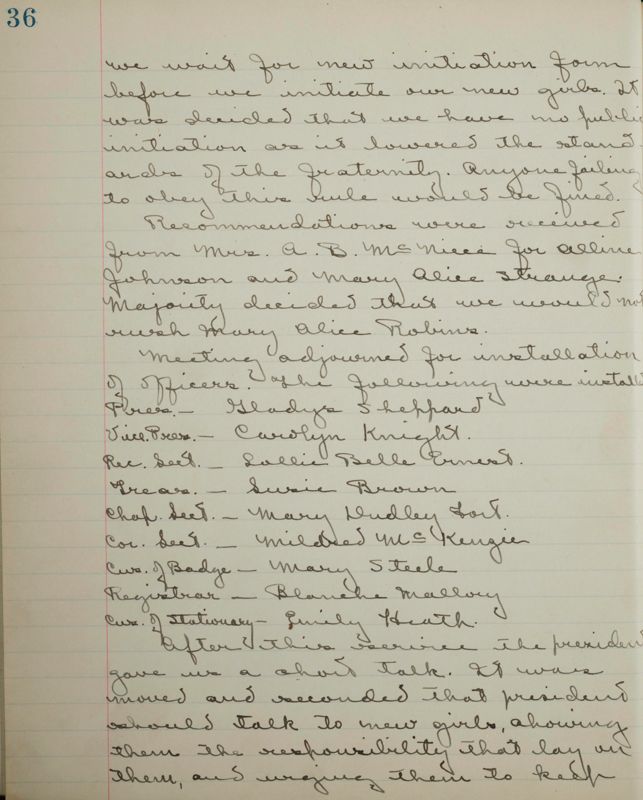 36
we wait for new initiation form
before we initiate our new girls. It
was decided that we have no public
initiation as it lowered the stand-
ards of the fraternity. Anyone failing
to obey this rule would be fined.
Recommendations were received
from Mrs. A. B. McNiece for Alline
Johnson and Mary Alice Strange.
Majority decided that we would not
rush Mary Alice Robins.
Meeting adjourned for installation
of officers. The following were install
Pres. – Gladys Sheppard
Vice. Pres. – Carolyn Knight.
Rec. Sect. – Sallie Belle Ernest.
Treas. – Susie Brown
Chap. Sect. – Mary Dudley Fort.
Cor. Sect. – Mildred McKengie
Cus. of Badge – Mary Steele
Registrar – Blanche Mallory
Cus. of Stationary – Emily Heath.
After this service the president
gave us a short talk. It was
moved and seconded that president
should talk to new girls, showing
them the responsibility that lay on
them, and urging them to keep